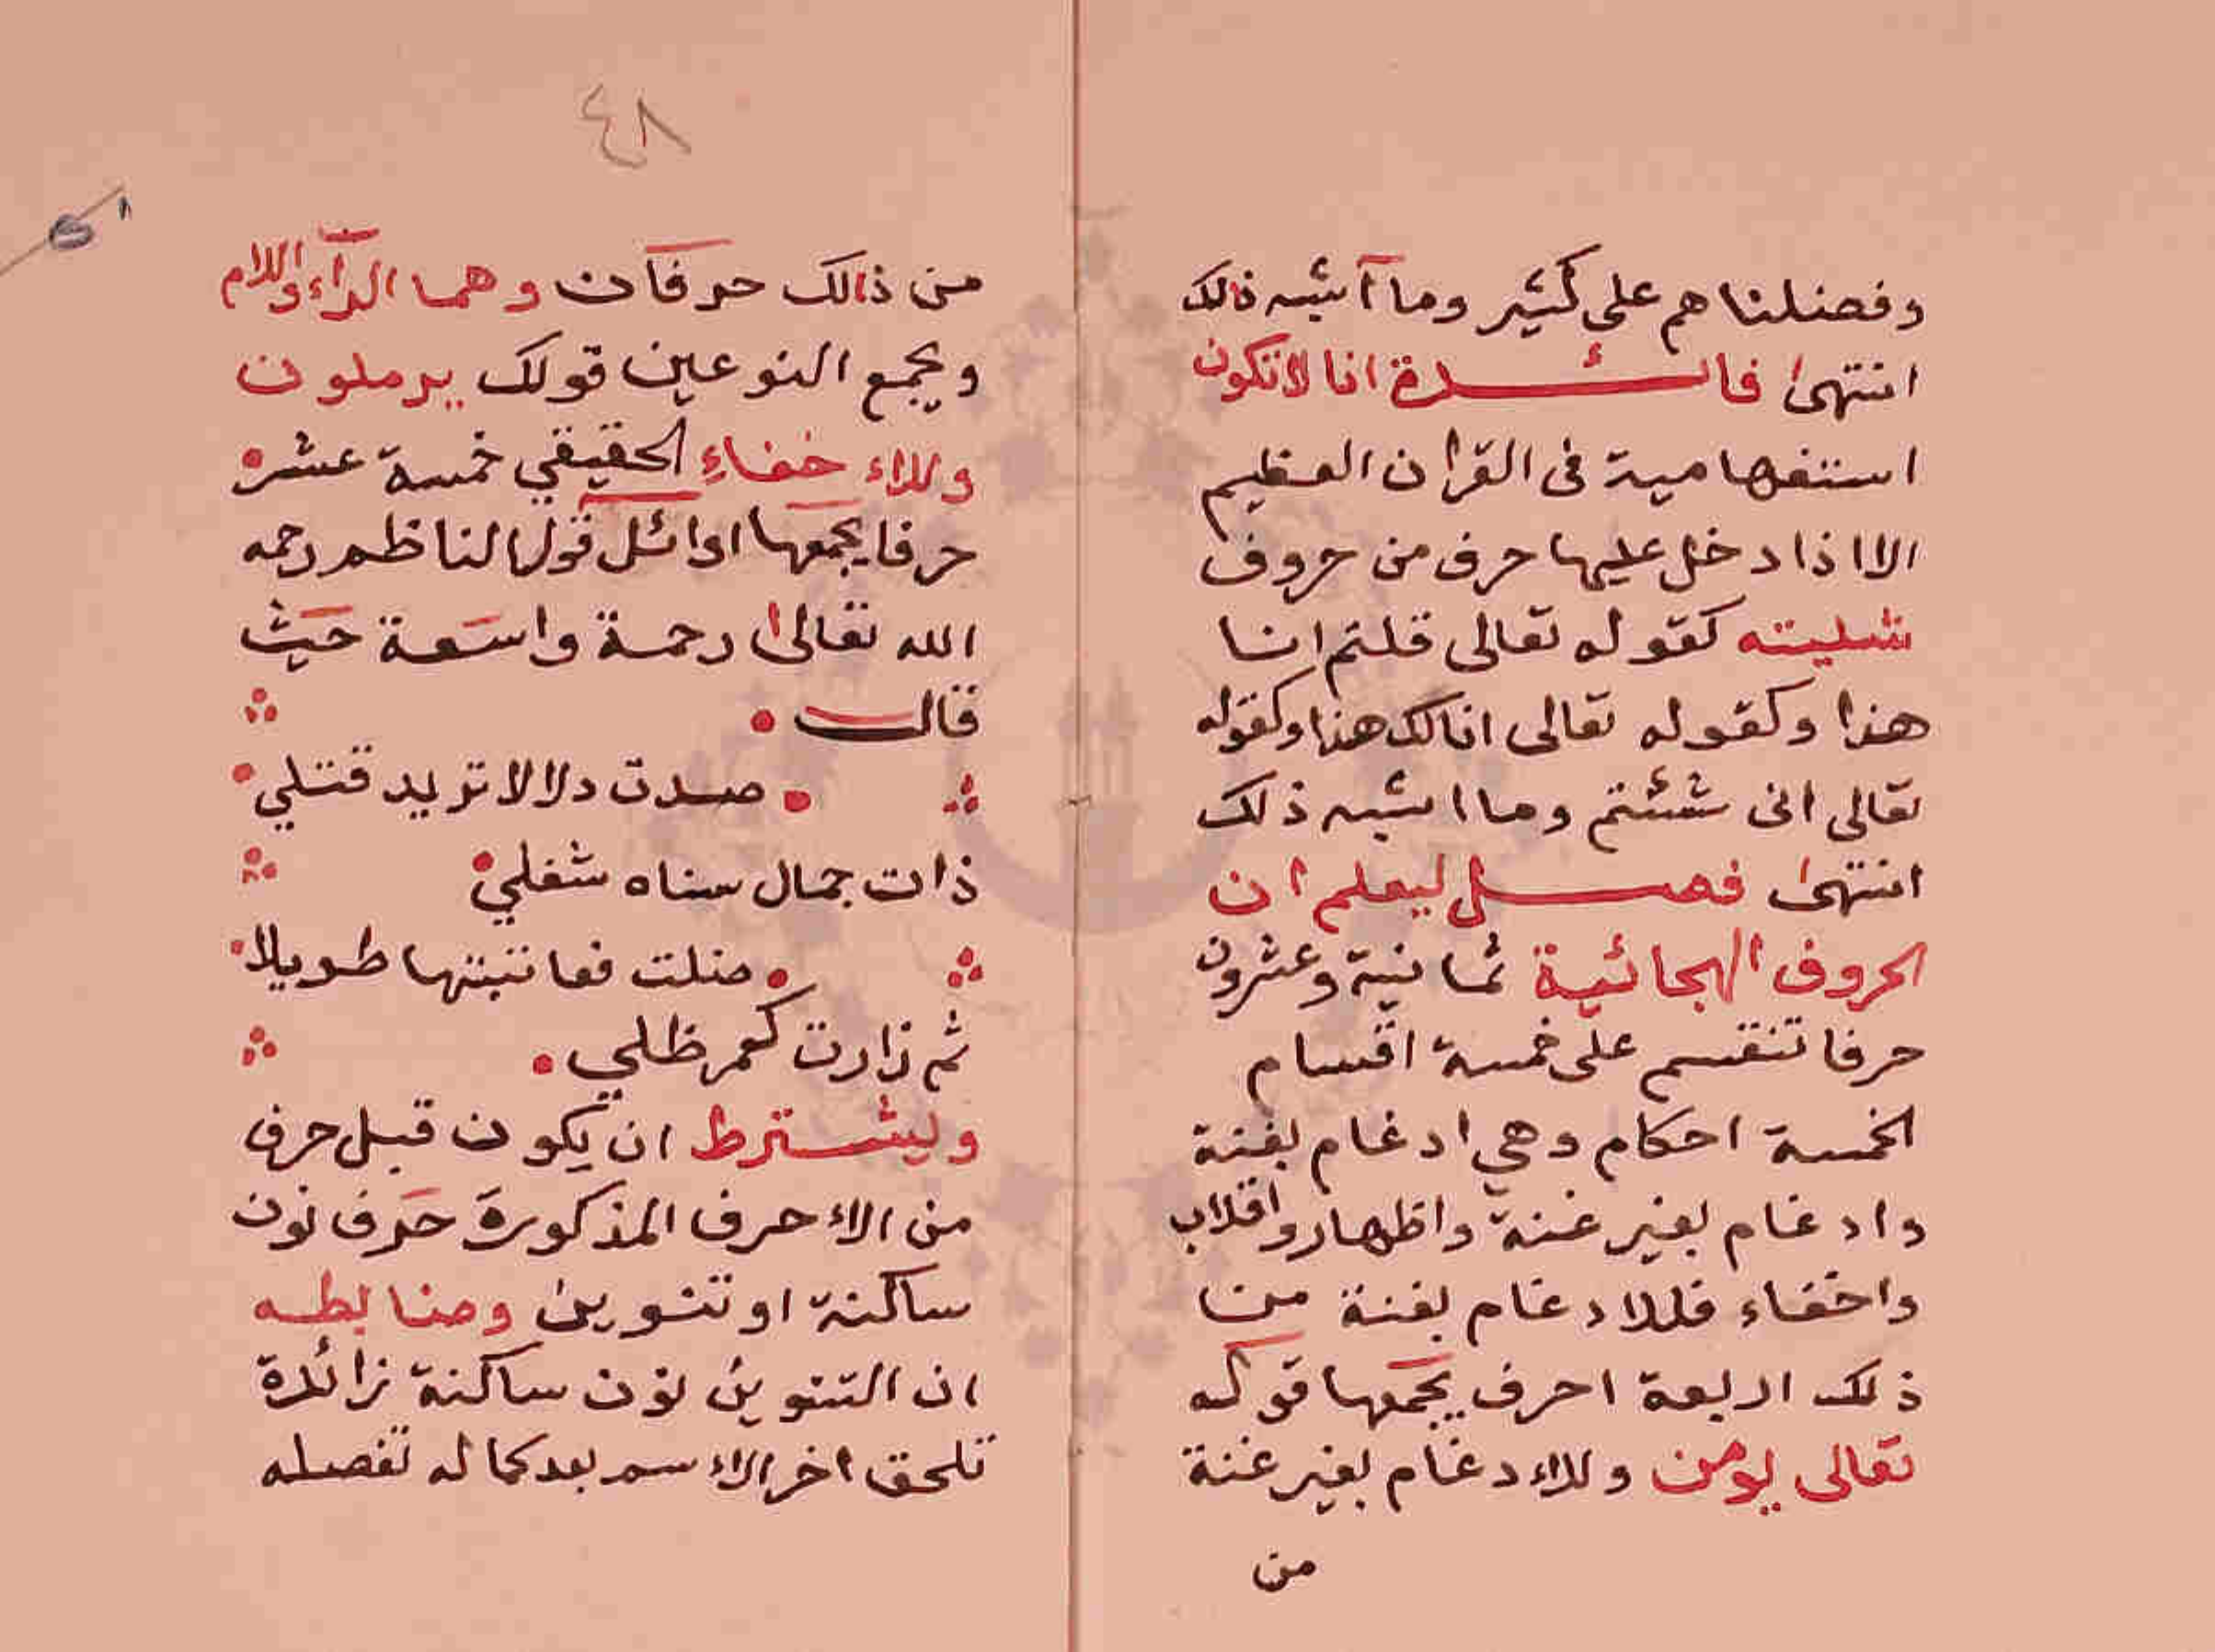 وفضلناهم على كثير وما أشبه ذالك
انتهىٰ فائدة انا لا تكون
استفهامية فى القران العظيم
الا اذا دخل عليها حرف من حروف
شليته كقوله تعالى قلتم انا
هذا وكقوله تعالى انا لك هذا وكقوله
تعالى انى شئتم وما اشبه ذلك
انتهىٰ فصل ليعلم ان
الحروف الهجائية ثمانية وعشرون
حرفا تنقسم على خمسة اقسام
الخمسة احكام وهي ادغام بغنة
وادغام بغير غنة واظهار واقلاب
واخفاء فللادغام بغنة من
ذلك اربعة احرف يجمعها قولـه
تعالى يومن وللاءدغام بغير غنة
من
٤٨
من ذالك حرفان وهما الرآء واللام
ويجمع النوعين قولك يرملون
وللاءخفاءِ الحقيقي خمسة عشر
حرفا يجمعها اوائل قول الناظم رحمه
الله تعالىٰ رحمة واسعة حيث
قال
صدت دلالا تريد قتلي
ذات جمال سناه شغلي
ضلت فعاتبتها طويلا
ثم زارت كمر ظلي
وليشترط ان يكون قبل حرف
من الاءحرف المذكورة حرف نون
ساكنة او تنوين وضابطه
ان التنوين نون ساكنة زائدة
تلحق اخر الاءسم بعد كماله تفصله